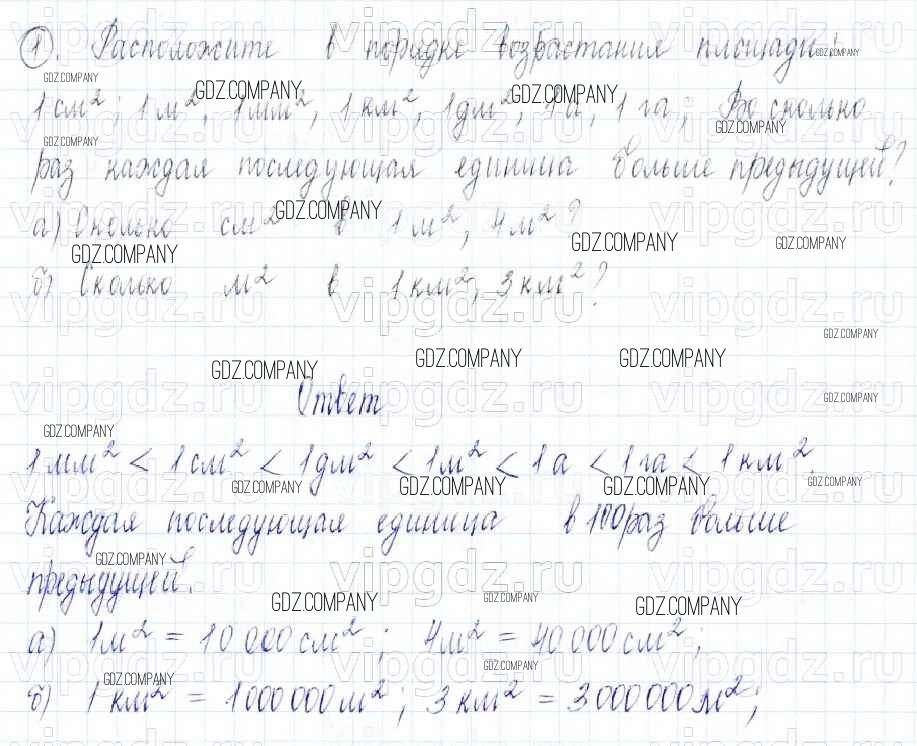 1. Расположите в порядке возрастания площади:
1 см²; 1 м², 1 мм², 1 км², 1 дм², 1 а, 1 га; Во сколько
раз каждая последующая единица больше предыдущей?
а) Сколько см² в 1 м², 4 м²?
б) Сколько м² в 1 км², 3 км²?
Ответ
1 мм² < 1 см² < 1 дм² < 1 м² < 1 а < 1 га < 1 км².
Каждая последующая единица в 100 раз больше
предыдущей.
а) 1 м² = 10 000 см²; 4 м² = 40 000 см²;
б) 1 км² = 1 000 000 м²; 3 км² = 3 000 000 м²;
GDZ.COMPANY
vipgdz.ru